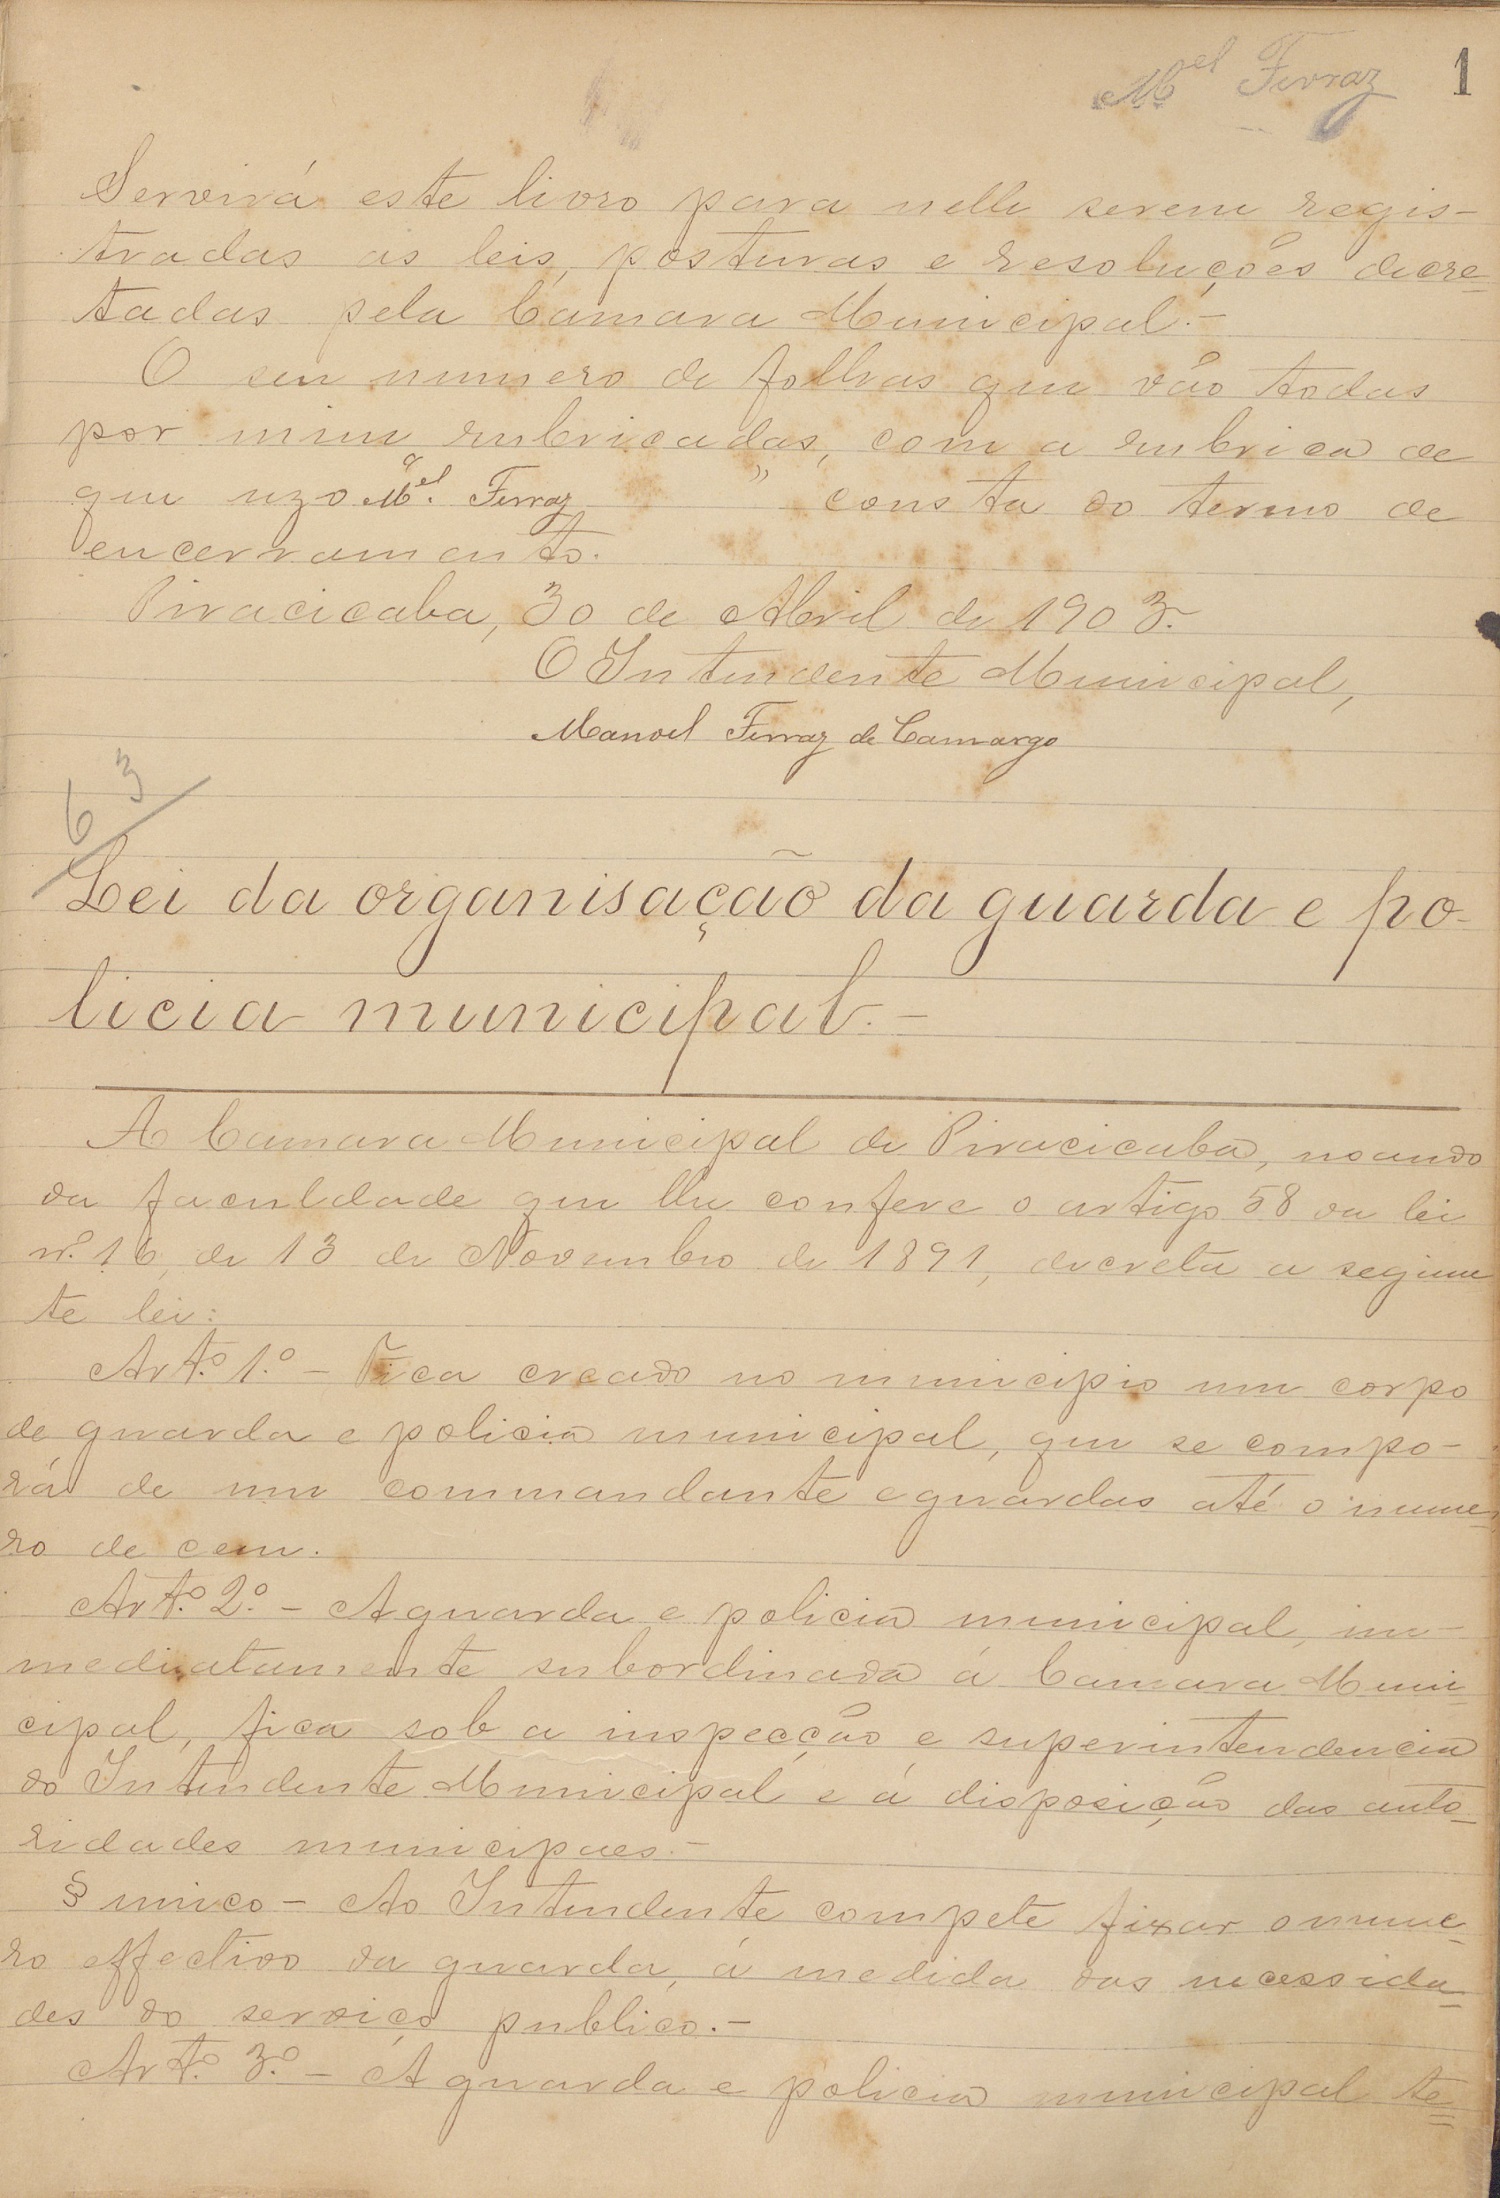 Mel Ferraz 1
Servirá este livro para nelle serem regis-
tradas as leis, posturas e resoluções decre-
tadas pela Camara Municipal.-
O seu numero de folhas que vão todas
por mim rubricadas, com a rubrica de
que uzo "Mel. Ferraz " consta do termo de
encerramento.
Piracicaba, 30 de Abril de 1903.
O Intendente Municipal,
Manoel Ferraz de Camargo
63
Lei da organisação da guarda e po-
licia municipal.-
A Camara Municipal de Piracicaba, usando
da faculdade que lhe confere o artigo 58 da lei
nº. 16, de 13 de Novembro de 1891, decreta a seguin
te lei:
Artº. 1.º - Fica creado no municipio um corpo
de guarda e policia municipal, que se compo-
rá de um commandante e guardas até o nume-
ro de cem.
Artº. 2º. - A guarda e policia municipal, im-
mediatamente subordinada á Camara Muni-
cipal, fica sob a inspecção e superintendencia
do Intendente Municipal e á disposição das auto-
ridades municipaes.-
§ unico - Ao Intendente compete fixar o nume-
ro effectivo da guarda, á medida das necessida-
des do serviço publico.-
Artº. 3.º - A guarda e policia municipal te=